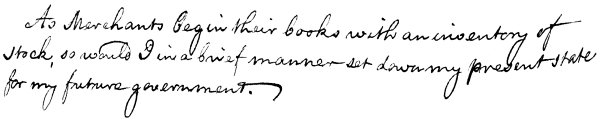 As Merchants begin their books with an inventory of
stock, so would I in a brief manner set down my present state
for my future government.